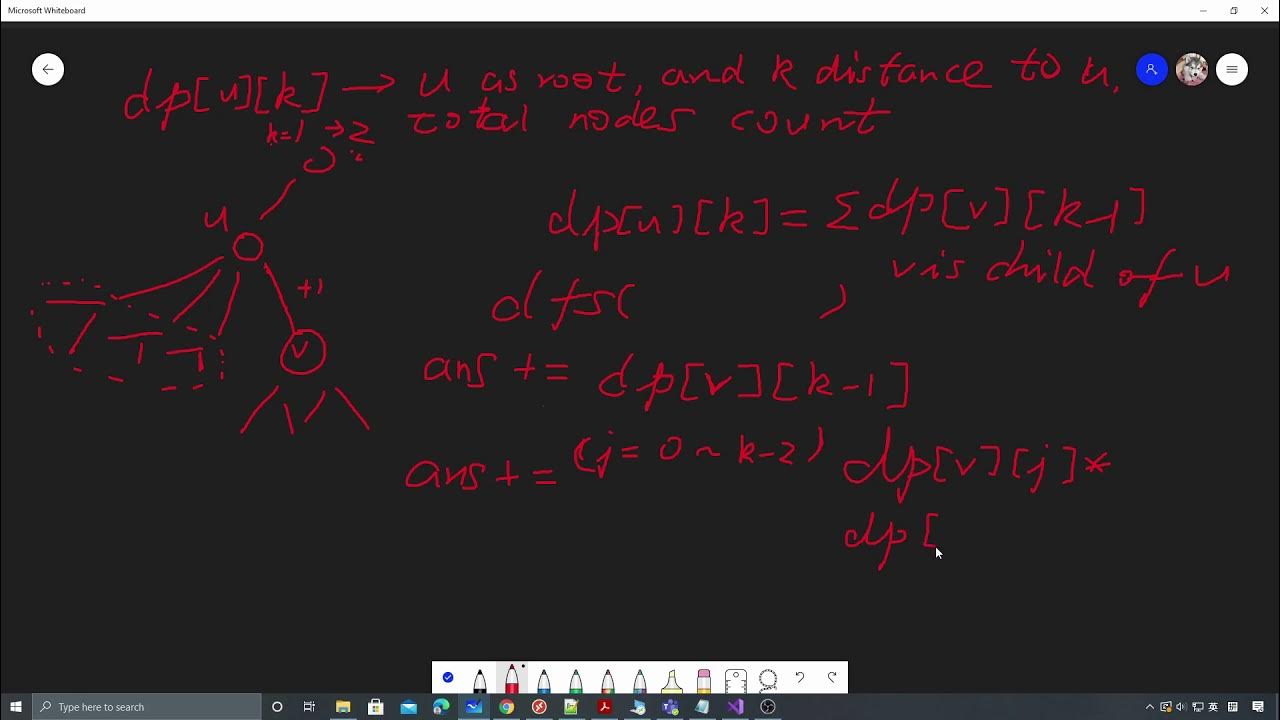 Microsoft Whiteboard
dp[u][k] → u as root, and k distance to u,
total nodes count
k=1 → 2
u
dp[u][k] = Σdp[v][k-1]
v is child of u
+1
dfs( )
v
ans += dp[v][k-1]
ans += (j = 0 ~ k-2) dp[v][j]*
dp[
Type here to search
英 拼